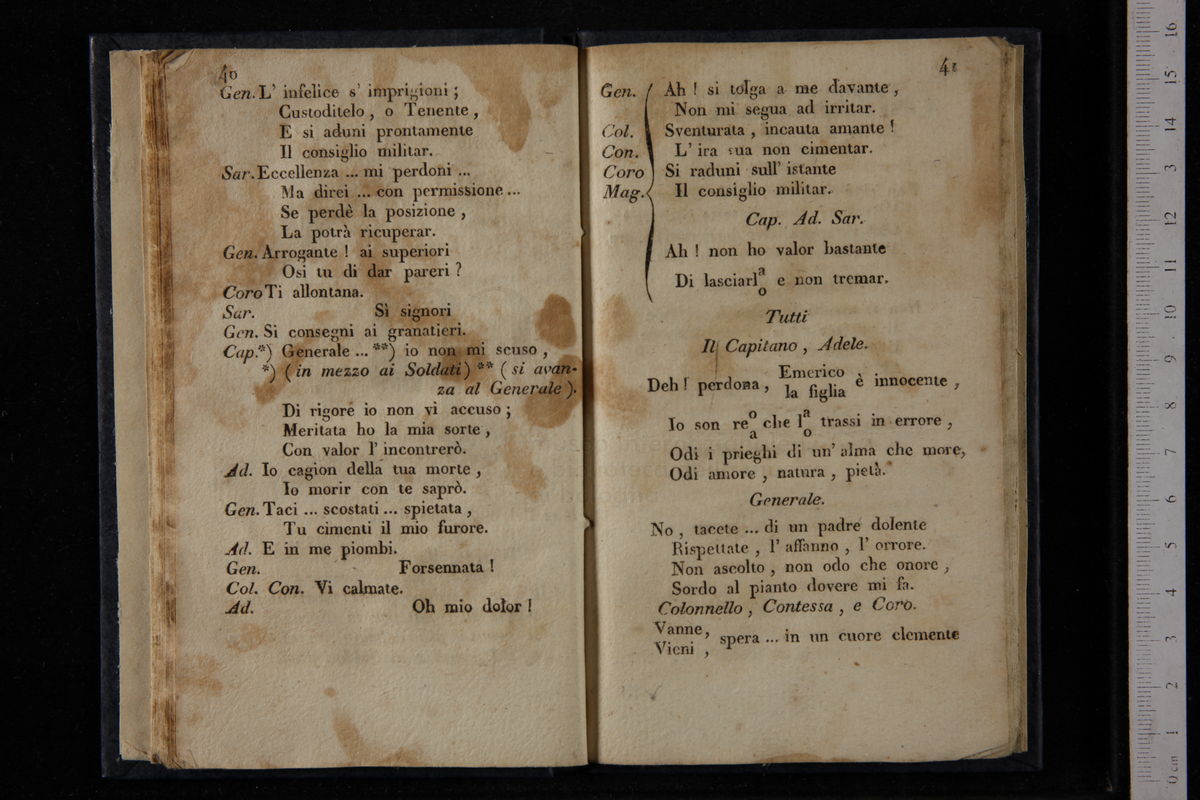 40
Gen. L' infelice s' imprigioni ;
Custoditelo , o Tenente ,
E si aduni prontamente
Il consiglio militar.
Sar. Eccellenza ... mi perdoni ...
Ma direi ... con permissione ...
Se perdè la posizione ,
La potrà ricuperar.
Gen. Arrogante ! ai superiori
Osi tu di dar pareri ?
Coro Ti allontana.
Sar. Sì signori
Gen. Si consegni ai granatieri.
Cap.*) Generale ... **) io non mi scuso ,
*) ( in mezzo ai Soldati ) ** ( si avan-
za al Generale ).
Di rigore io non vi accuso ;
Meritata ho la mia sorte ,
Con valor l' incontrerò.
Ad. Io cagion della tua morte ,
Io morir con te saprò.
Gen. Taci ... scostati ... spietata ,
Tu cimenti il mio furore.
Ad. E in me piombi.
Gen. Forsennata !
Col. Con. Vi calmate.
Ad. Oh mio dolor !
41
Gen. Ah ! si tolga a me davante ,
Non mi segua ad irritar.
Col. Sventurata , incauta amante !
Con. L' ira sua non cimentar.
Coro Si raduni sull' istante
Mag. Il consiglio militar.
Cap. Ad. Sar.
Ah ! non ho valor bastante
Di lasciarl a o e non tremar.
Tutti
Il Capitano , Adele.
Deh ! perdona , Emerico la figlia è innocente ,
Io son re o a che l a o trassi in errore ,
Odi i prieghi di un' alma che more,
Odi amore , natura , pietà.
Generale.
No , tacete ... di un padre dolente
Rispettate , l' affanno , l' orrore.
Non ascolto , non odo che onore ,
Sordo al pianto dovere mi fa.
Colonnello , Contessa , e Coro.
Vanne, Vieni , spera ... in un cuore clemente
0 cm 1 2 3 4 5 6 7 8 9 10 11 12 3 14 15 16